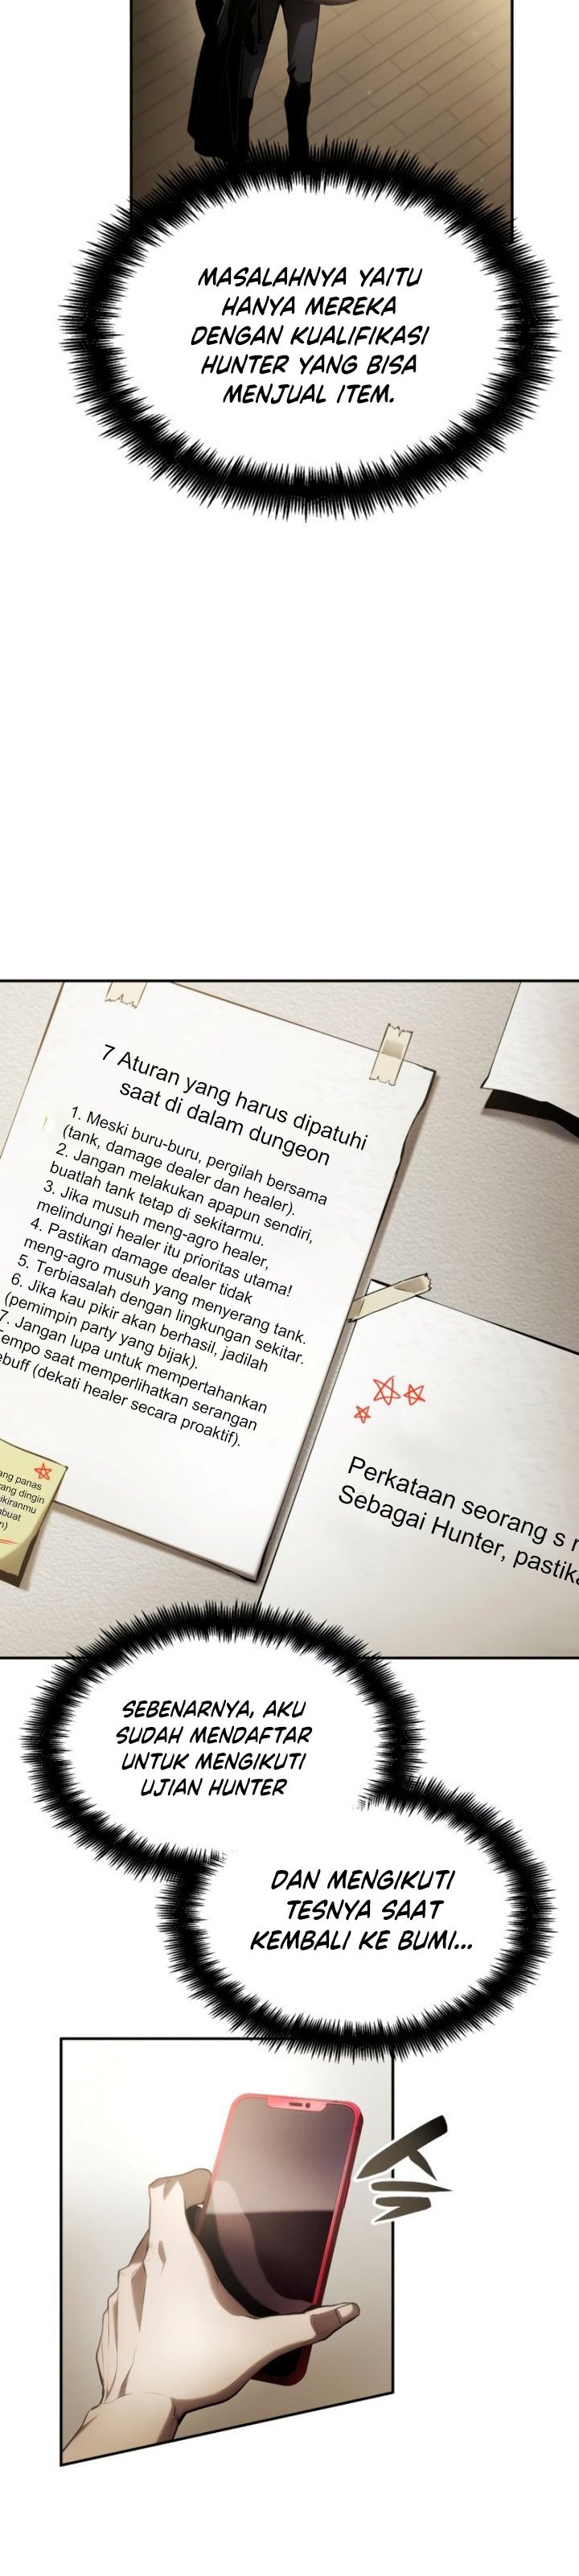 MASALAHNYA YAITU
HANYA MEREKA
DENGAN KUALIFIKASI
HUNTER YANG BISA
MENJUAL ITEM.
7 Aturan yang harus dipatuhi
saat di dalam dungeon
1. Meski buru-buru, pergilah bersama
(tank, damage dealer dan healer).
2. Jangan melakukan apapun sendiri,
buatlah tank tetap di sekitarmu.
3. Jika musuh meng-agro healer,
melindungi healer itu prioritas utama!
4. Pastikan damage dealer tidak
meng-agro musuh yang menyerang tank.
5. Terbiasalah dengan lingkungan sekitar.
6. Jika kau pikir akan berhasil, jadilah
(pemimpin party yang bijak).
7. Jangan lupa untuk mempertahankan
tempo saat memperlihatkan serangan
ebuff (dekati healer secara proaktif).
ang panas
ang dingin
ikiranmu
buat
n)
Perkataan seorang s
Sebagai Hunter, pastika
SEBENARNYA, AKU
SUDAH MENDAFTAR
UNTUK MENGIKUTI
UJIAN HUNTER
DAN MENGIKUTI
TESNYA SAAT
KEMBALI KE BUMI...